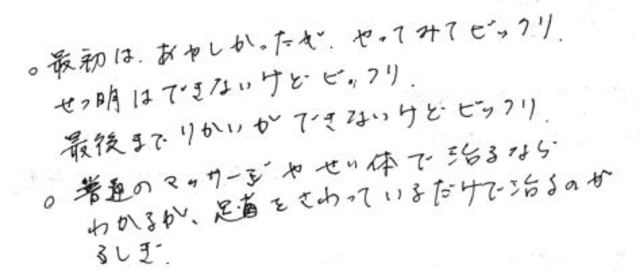 ○最初は、あやしかったが、やってみてビックリ。
せつ明はできないけどビックリ。
最後までりかいができないけどビックリ。
○普通のマッサージやせい体で治るなら
わかるが、足首をさわっているだけで治るのが
ふしぎ。